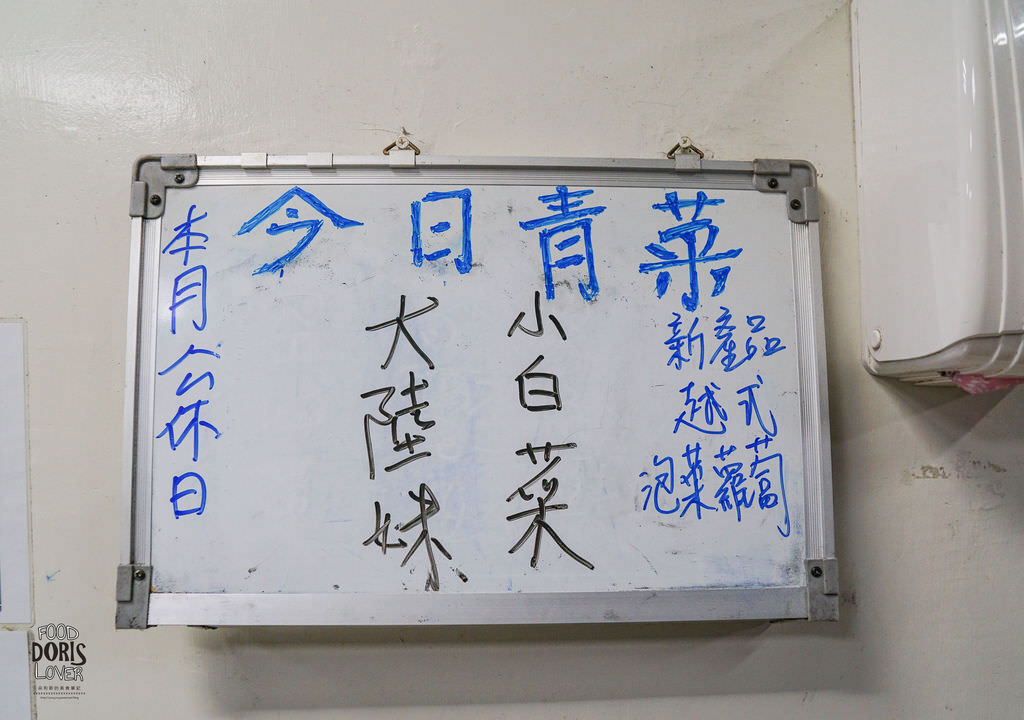 今日青菜
新產品
越式
泡菜蘿蔔
小白菜
大陸妹
本月公休日
FOOD
DORIS
LOVER